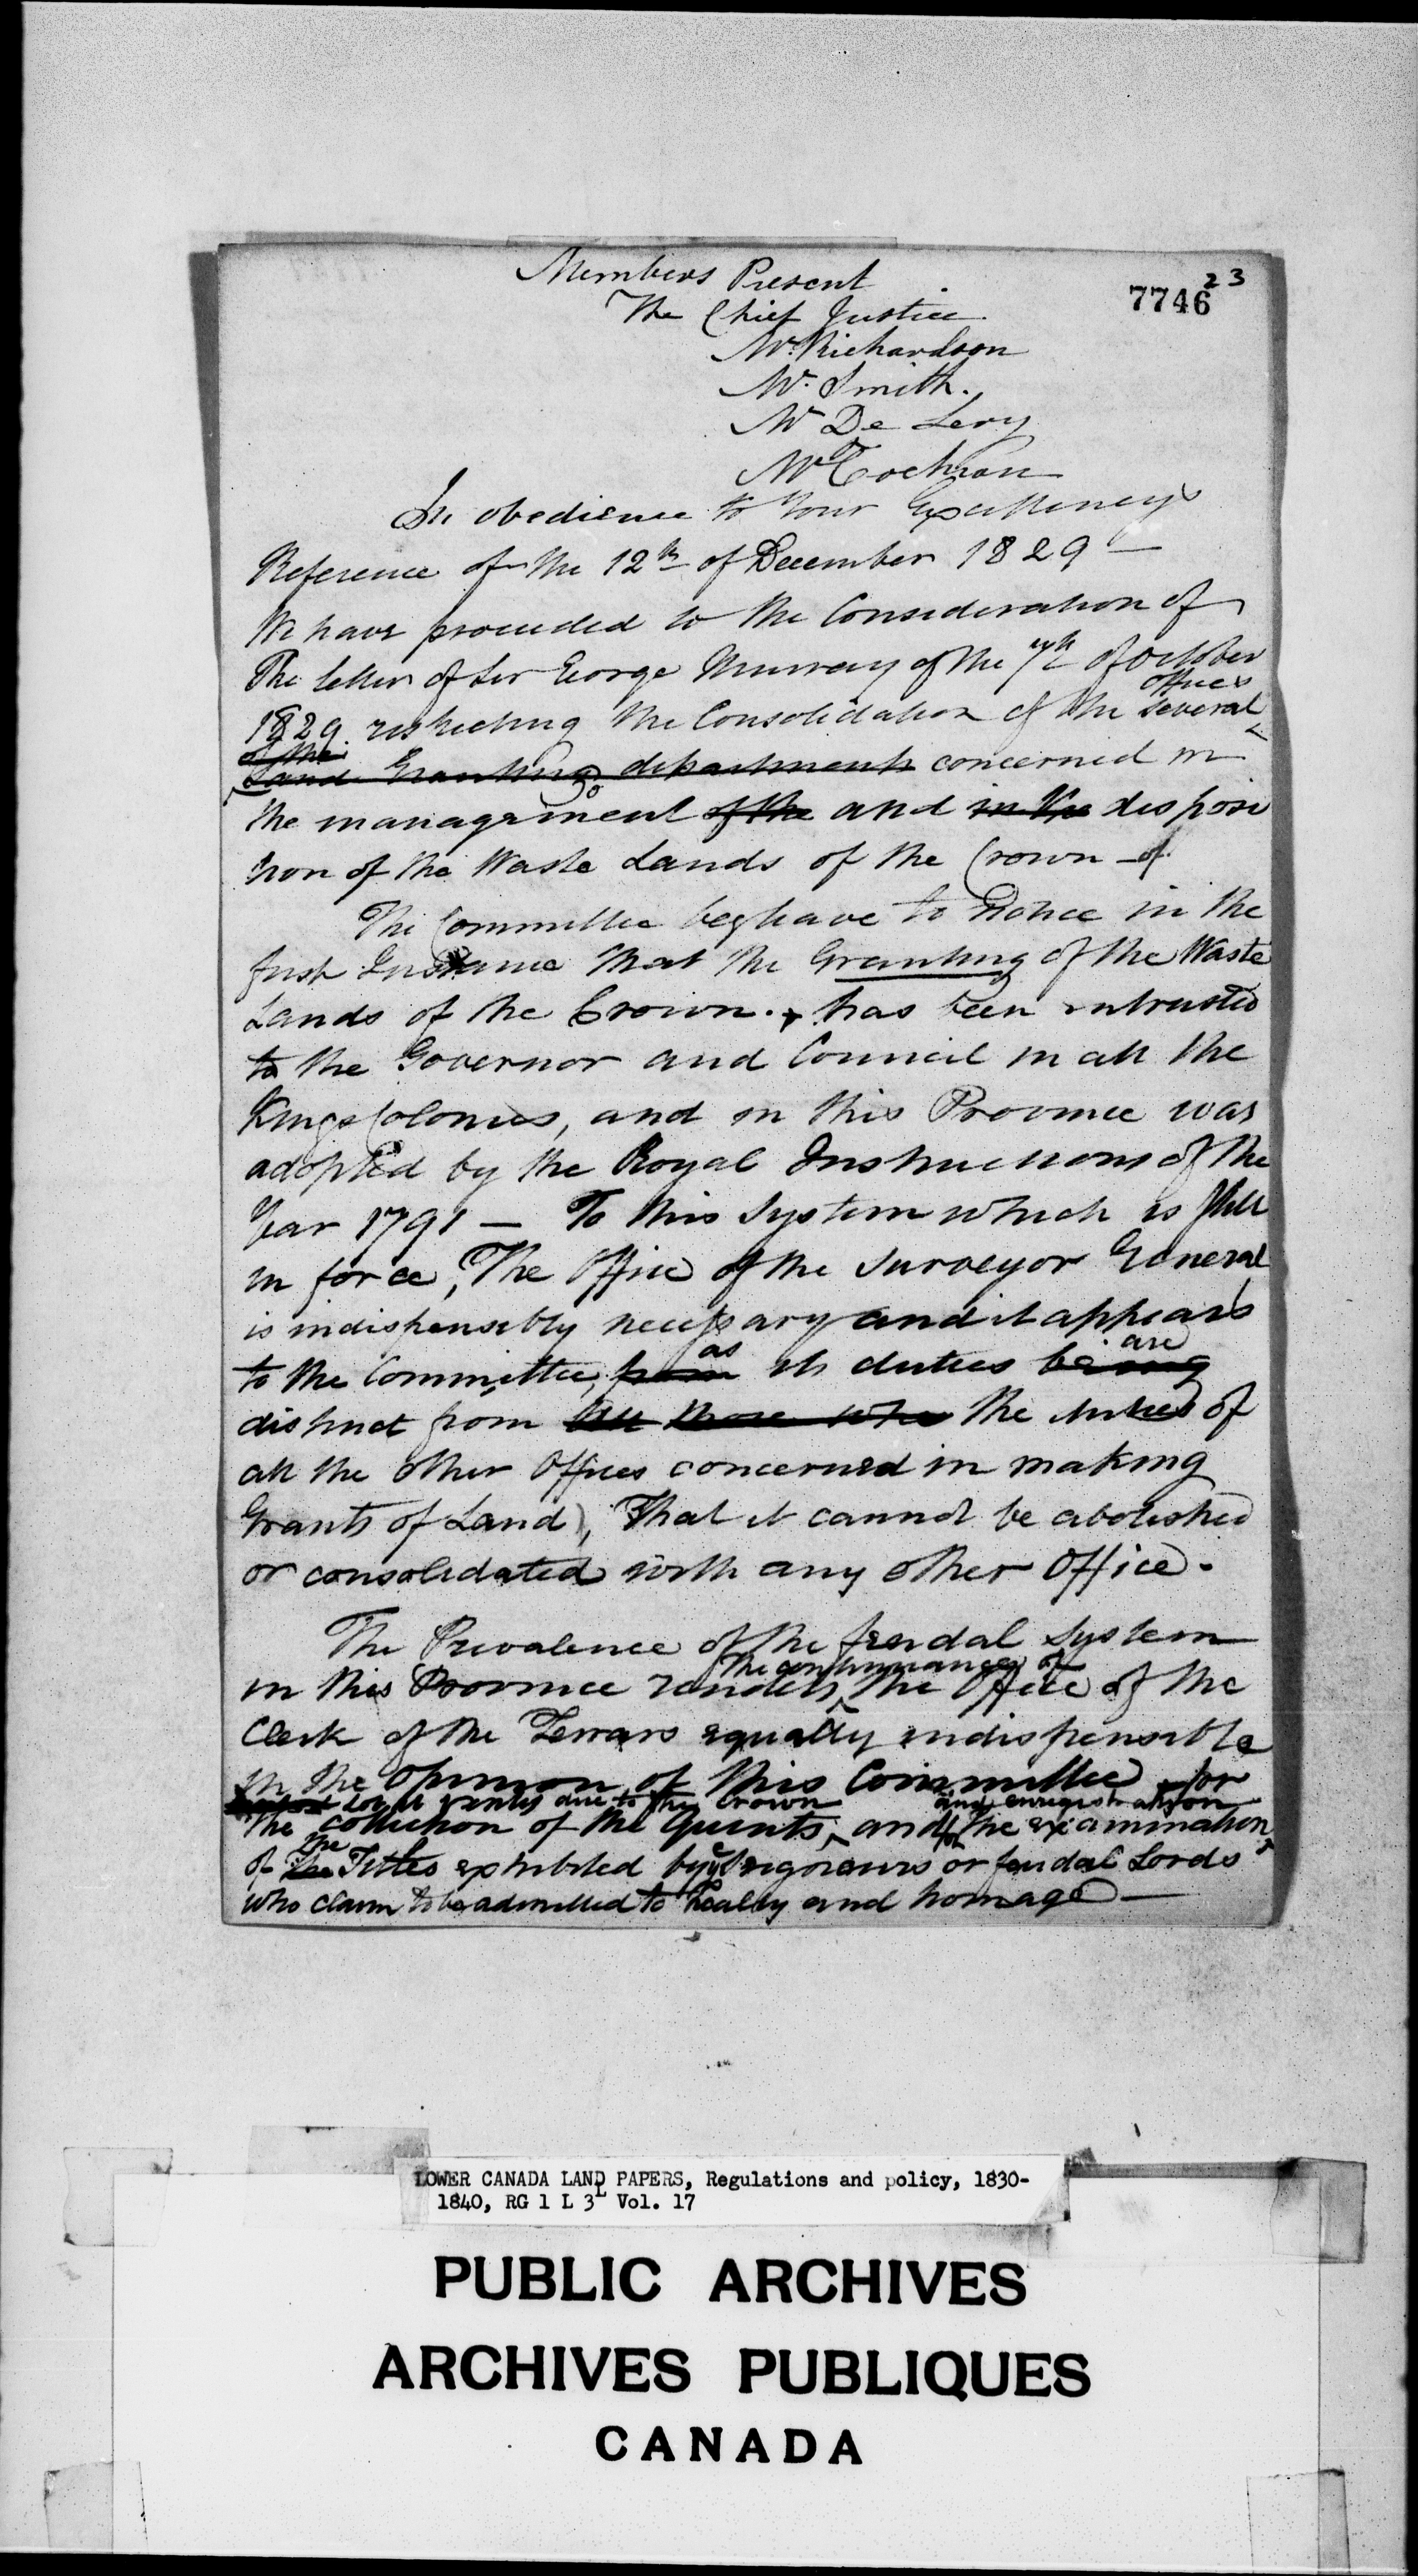 23
7746
Members Present
The Chief Justice.
Mr. Richardson
Mr. Smith.
Mr De Lery
Mr Cochran
In obedience to Your Excellency's
Reference of the 12th of December 1829 —
We have proceeded to the Consideration of
The letter of Sir George Murray of the 7th of October
offices
1829 respecting the Consolidation of the several
of the
Land Granting departments concerned in
the management of the and in the disposi
tion of the Waste Lands of the Crown - of
The Committee beg leave to Notice in the
first Instance that the Granting of the Waste
Lands of the Crown. has been intrusted
to the Governor and Council in all the
Kings Colonies, and in this Province was
adopted by the Royal Instructions of the
Year 1791 — To this System which is still
in force, The Office of the Surveyor General
is indispensibly necessary and it appears
as are
to the Committee, from its duties being
distinct from all those who the duties of
all the other Offices concerned in making
Grants of Land, That it cannot be abolished
or consolidated with any other Office.
The Prevalence of the feudal System
the continuance of
in this Province renders the Office of the
Clerk of the Terrars equally indispensible
in the opinion of this Committee for
Lods et ventes due to the Crown and enregistration
the collection of the Quints, and for the examination
the
of the Titles exhibited by Seigneurs or feudal Lords
who claim to be admitted to Fealty and homage —
LOWER CANADA LAND PAPERS, Regulations and policy, 1830-
1840, RG 1 L 3L Vol. 17
PUBLIC ARCHIVES
ARCHIVES PUBLIQUES
CANADA